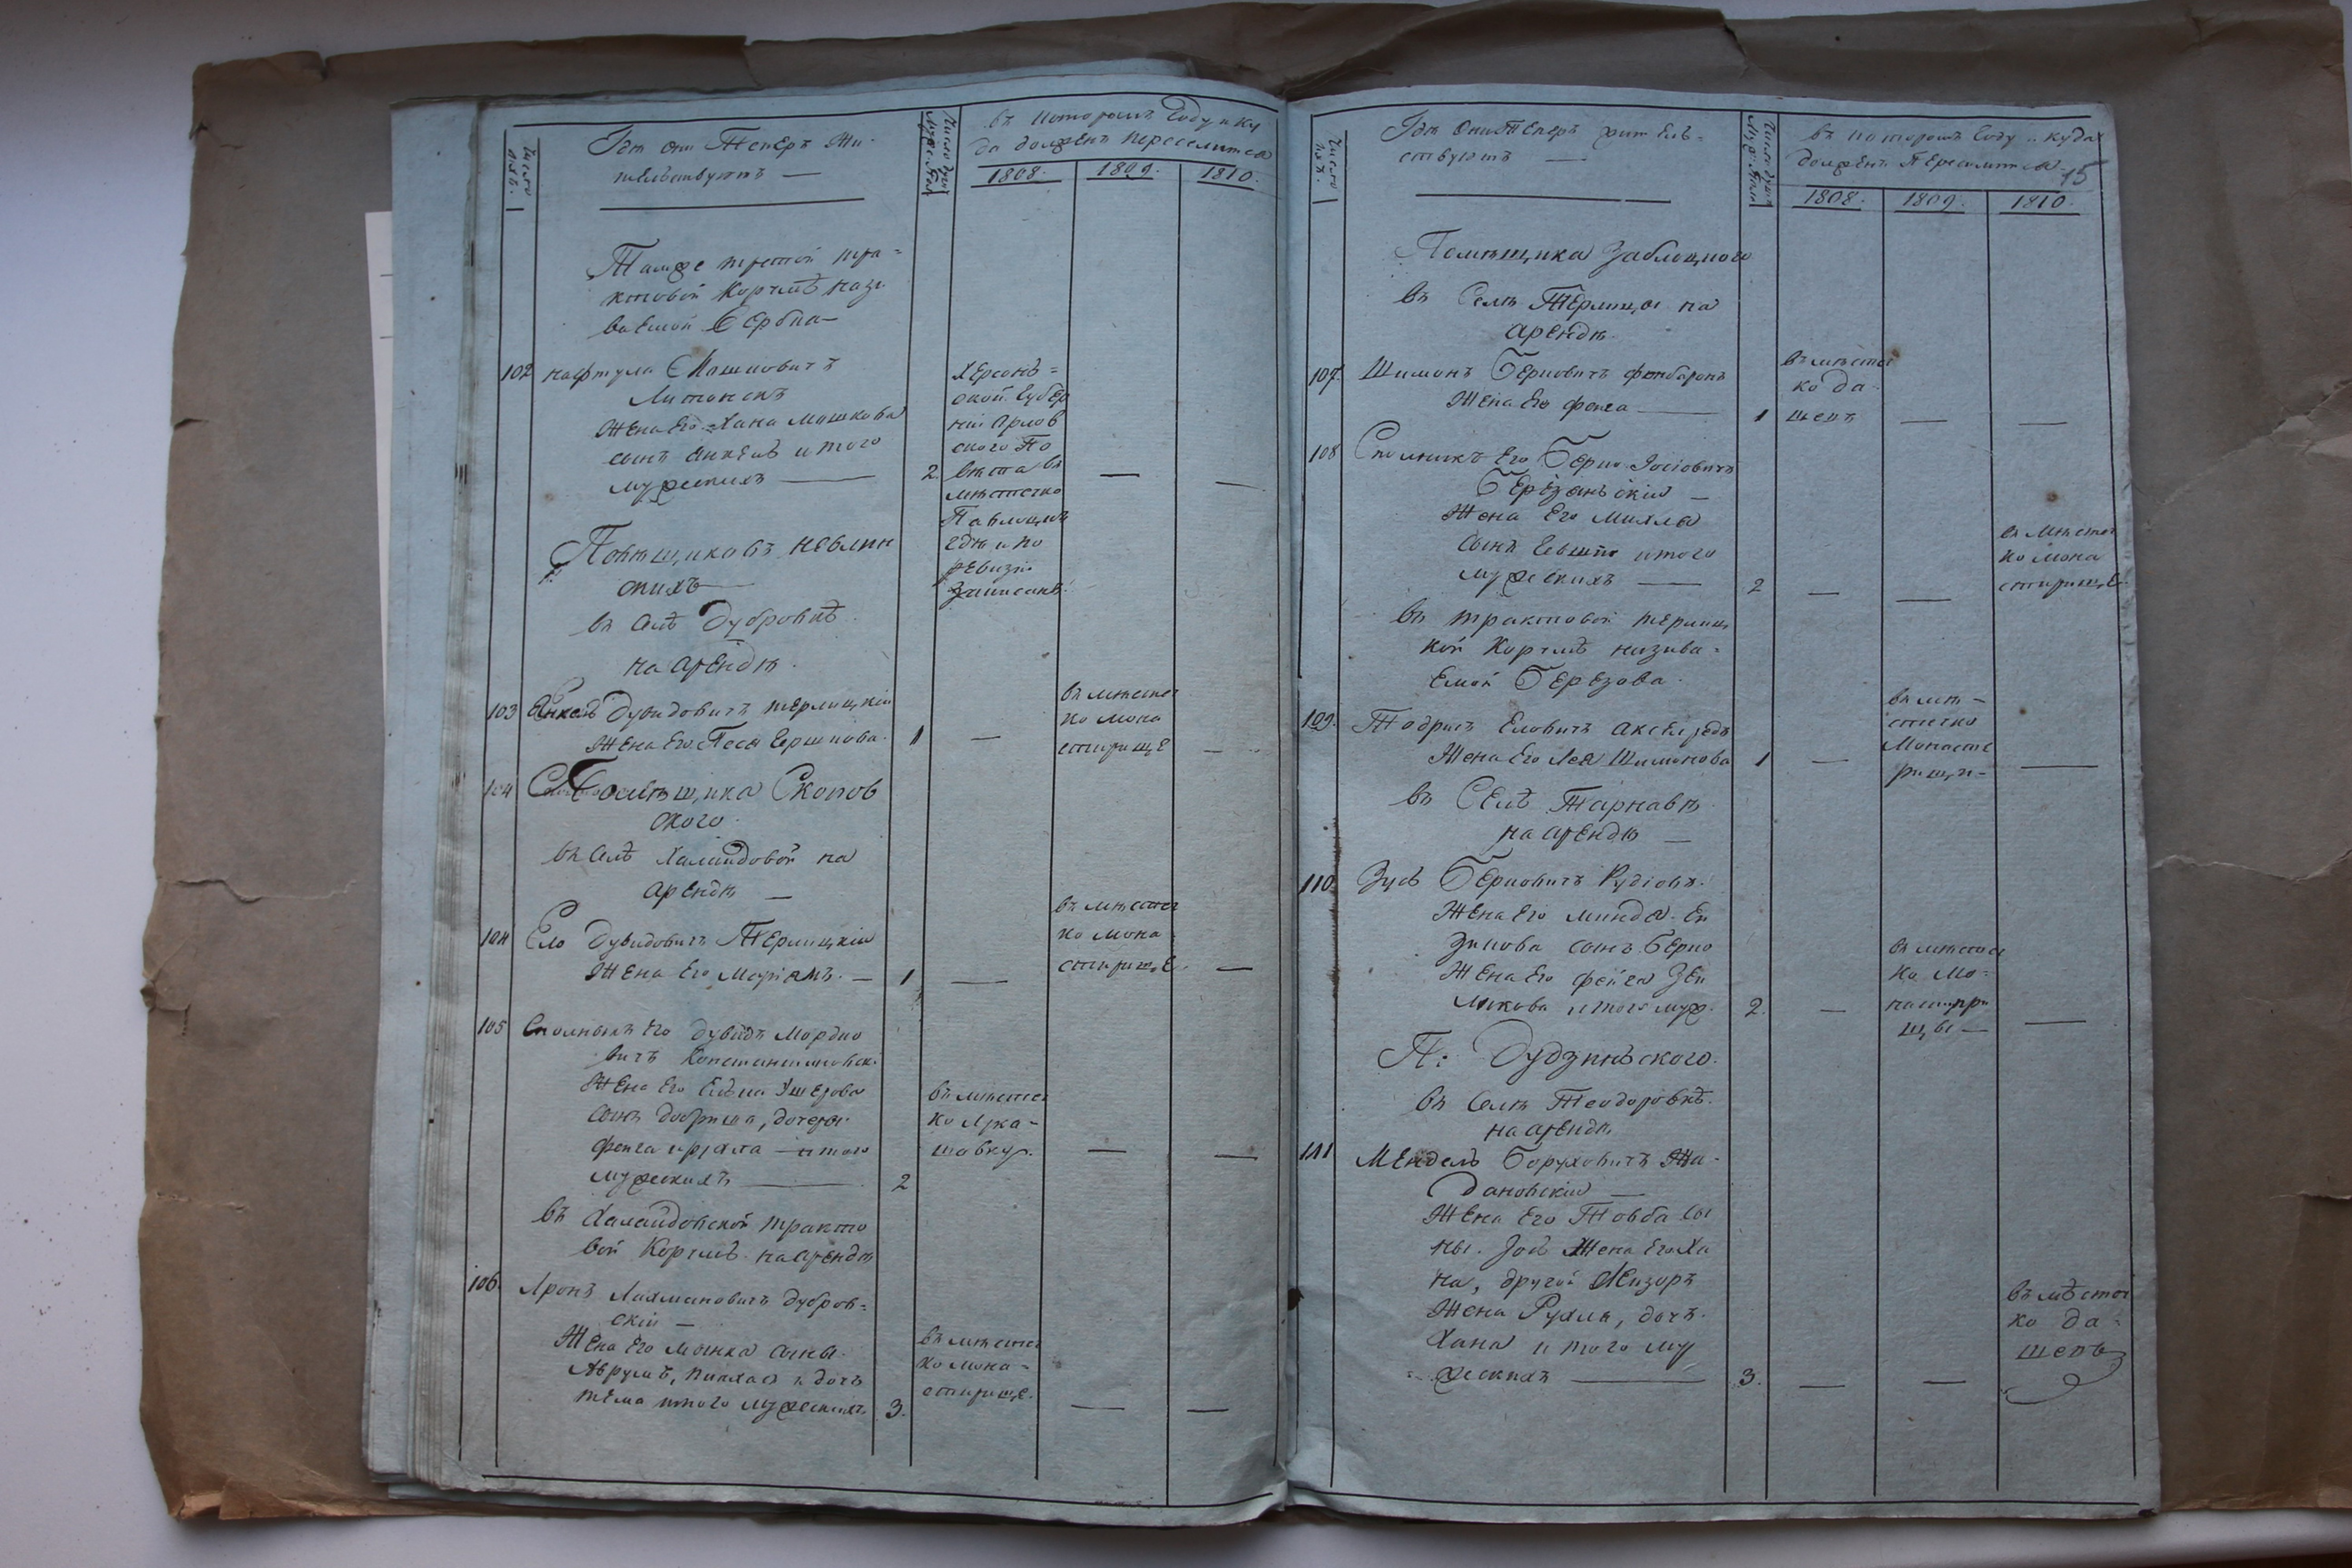 Число
Гдѣ они Теперъ Жи-
тельствуютъ —
Число душ
Муж: Пола
въ которомъ Году и ку
да долженъ переселится
1808. 1809. 1810.
Тамже третой тра-
ктовой Корчмѣ нази
ваемой Вербка
102 Нафтула Мошковичъ
Литинскъ
Жена Его Хана Мошкова
сынъ Анкель итого
мужескихъ — 2. — —
Херсонъ-
ской Губер
ніи Орлов
ского По
вѣта въ
мѣстечко
гдѣ и по
ревизіи
записанъ.
Повѣщиковъ
въ Селѣ Дубровкѣ
на Арендѣ.
103 Анкель Дувидовичъ Терлицкій
Жена Его Песя Гершкова. 1 — —
въ мѣстеч
ко Мона
стирище
104 Помѣщика Скопов
ского.
въ Селѣ Халаидовой на
Арендѣ —
104 Ело Дувидовичъ Терлицкій
Жена Его Маріямъ. — 1 — —
въ мѣстеч
ко Мона
стирище.
105 Сполникъ Его Дувидъ Мордко
вичъ Константиновск:
Жена Его Ельки Ушерова
сынъ Добриша, дочери.
Фейга и — итого
мужескихъ — 2 — —
въ мѣстеч
ко Лука-
шовку.
въ Халаидовской тракто
вой Корчмѣ на арендѣ
106. Аронъ Лахмановичъ Дубров-
скій —
Жена Его Минка сыны.
Аврумъ, Пинхас и дочъ
тема итого мужескихъ 3. — —
въ мѣстеч
ко Мона-
стирище.
Число
Гдѣ Они Теперъ жителъ-
ствуютъ —
Число душъ
Муж: Пола
въ которомъ Году и куда
долженъ Переселится
15
1808. 1809. 1810.
Помѣщика Заблоцкого
въ Селѣ Терлица на
Арендѣ.
107. Шимонъ Берковичъ
Жена Его Фейга — 1 — —
въ мѣстеч
ко Да-
шевъ
108 Сполникъ Его Берко Іосіовичъ
Березанъскій —
Жена Его Михля
сынъ итого
мужескихъ — 2 — —
въ мѣстеч
ко Мона
стирище.
въ трактовой терлиц
кой Корчмѣ назива-
емой Березова.
109. Тодрисъ Еловичъ
Жена Его Лея Шимонова 1 — —
въ мѣ-
стечко
Монасте
рищи-
въ Селѣ Тарнавѣ
на арендѣ —
110. Зусъ Берковичъ
Жена Его Минда Ей
зикова сынъ Берко
Жена Его Фейга Зей
ликова итого муж. 2. — —
въ мѣстеч
ко Мо-
настири
щы —
П: Дудзинъского.
въ Селѣ Теодоровкѣ.
на арендѣ
111 Мендель Боруховичъ Жи-
дановскій —
Жена Его Товба сы
ны. Зось Жена Его Ха
на, другой Лейзоръ
Жена Рухля, дочъ.
Хана итого му
жескихъ — 3. — —
въ мѣстеч
ко Да-
шевъ